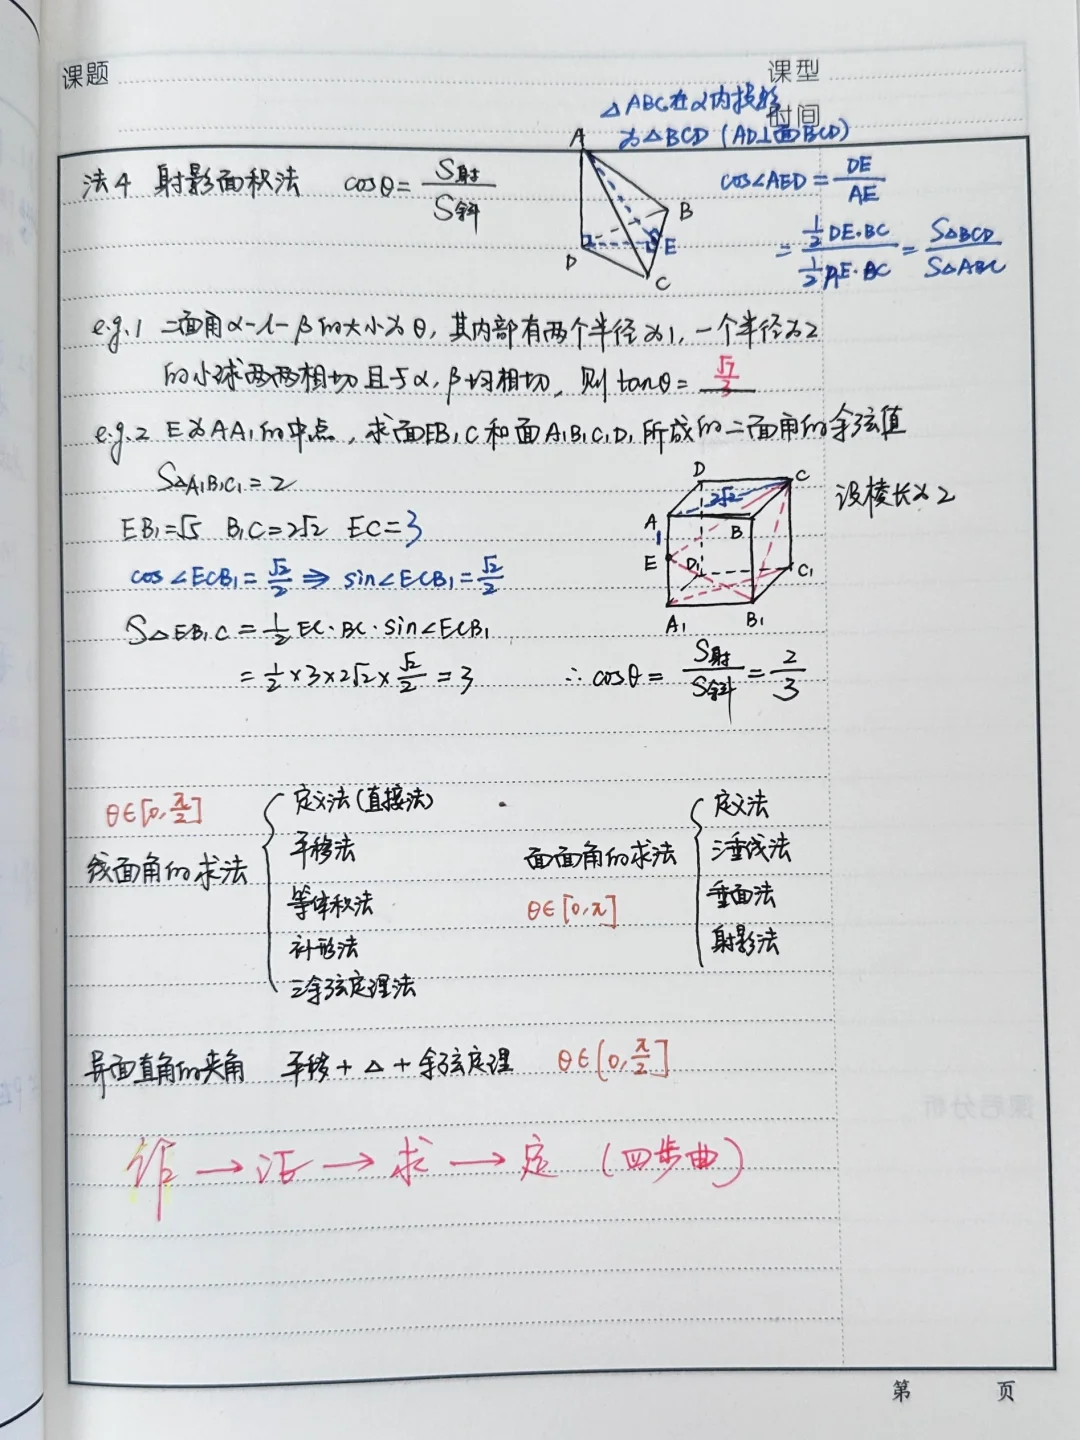 课题
课型
时间
△ABC在α内投影
为△BCD (AD⊥面BCD)
法4 射影面积法 cosθ = S射/S斜
A B C D E
cos∠AED = DE/AE
= (1/2 DE·BC)/(1/2 AE·BC) = S△BCD/S△ABC
e.g.1 二面角α-l-β的大小为θ, 其内部有两个半径为1, 一个半径为2
的小球两两相切且与α, β均相切, 则tanθ = √7/3
e.g.2 E为AA₁的中点, 求面EB₁C和面A₁B₁C₁D₁所成的二面角的余弦值
S△A₁B₁C₁ = 2
设棱长为2
D C 2√2 A B 1 E D₁ C₁ A₁ B₁
EB₁=√5 B₁C=2√2 EC=3
cos∠ECB₁ = √2/2 ⇒ sin∠ECB₁ = √2/2
S△EB₁C = 1/2 EC·BC·sin∠ECB₁
= 1/2 × 3 × 2√2 × √2/2 = 3
∴ cosθ = S射/S斜 = 2/3
θ∈[0, π/2]
线面角的求法
定义法(直接法)
平移法
等体积法
补形法
三余弦定理法
面面角的求法
θ∈[0, π]
定义法
三垂线法
垂面法
射影法
异面直角的夹角 平移 + △ + 余弦定理 θ∈(0, π/2]
作 → 证 → 求 → 定 (四步曲)
第 页